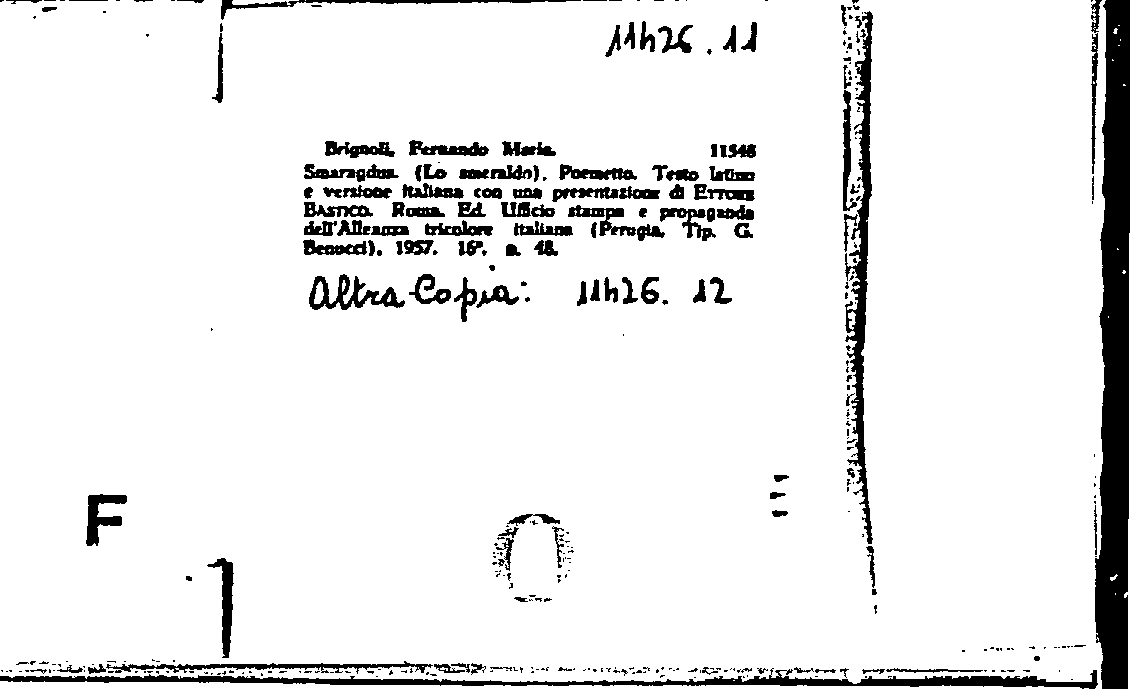 11h26.11
Brignoli, Fernando Maria. 11546
Smaragdus. (Lo smeraldo). Poemetto. Testo latino
e versione italiana con una presentazione di ETTORE
BASTICO. Roma. Ed. Ufficio stampa e propaganda
dell'Alleanza tricolore italiana (Perugia, Tip. G.
Benucci), 1957. 16°. p. 48.
Altra Copia: 11h26.12
F